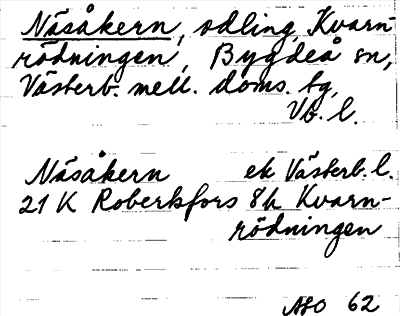 Näsåkern, odling, Kvarn-
rödningen, Bygdeå sn,
Västerb. mell. doms. tg,
Vb. l.
Näsåkern ek Västerb. l.
21 K Robertsfors 8h Kvarn-
rödningen
62